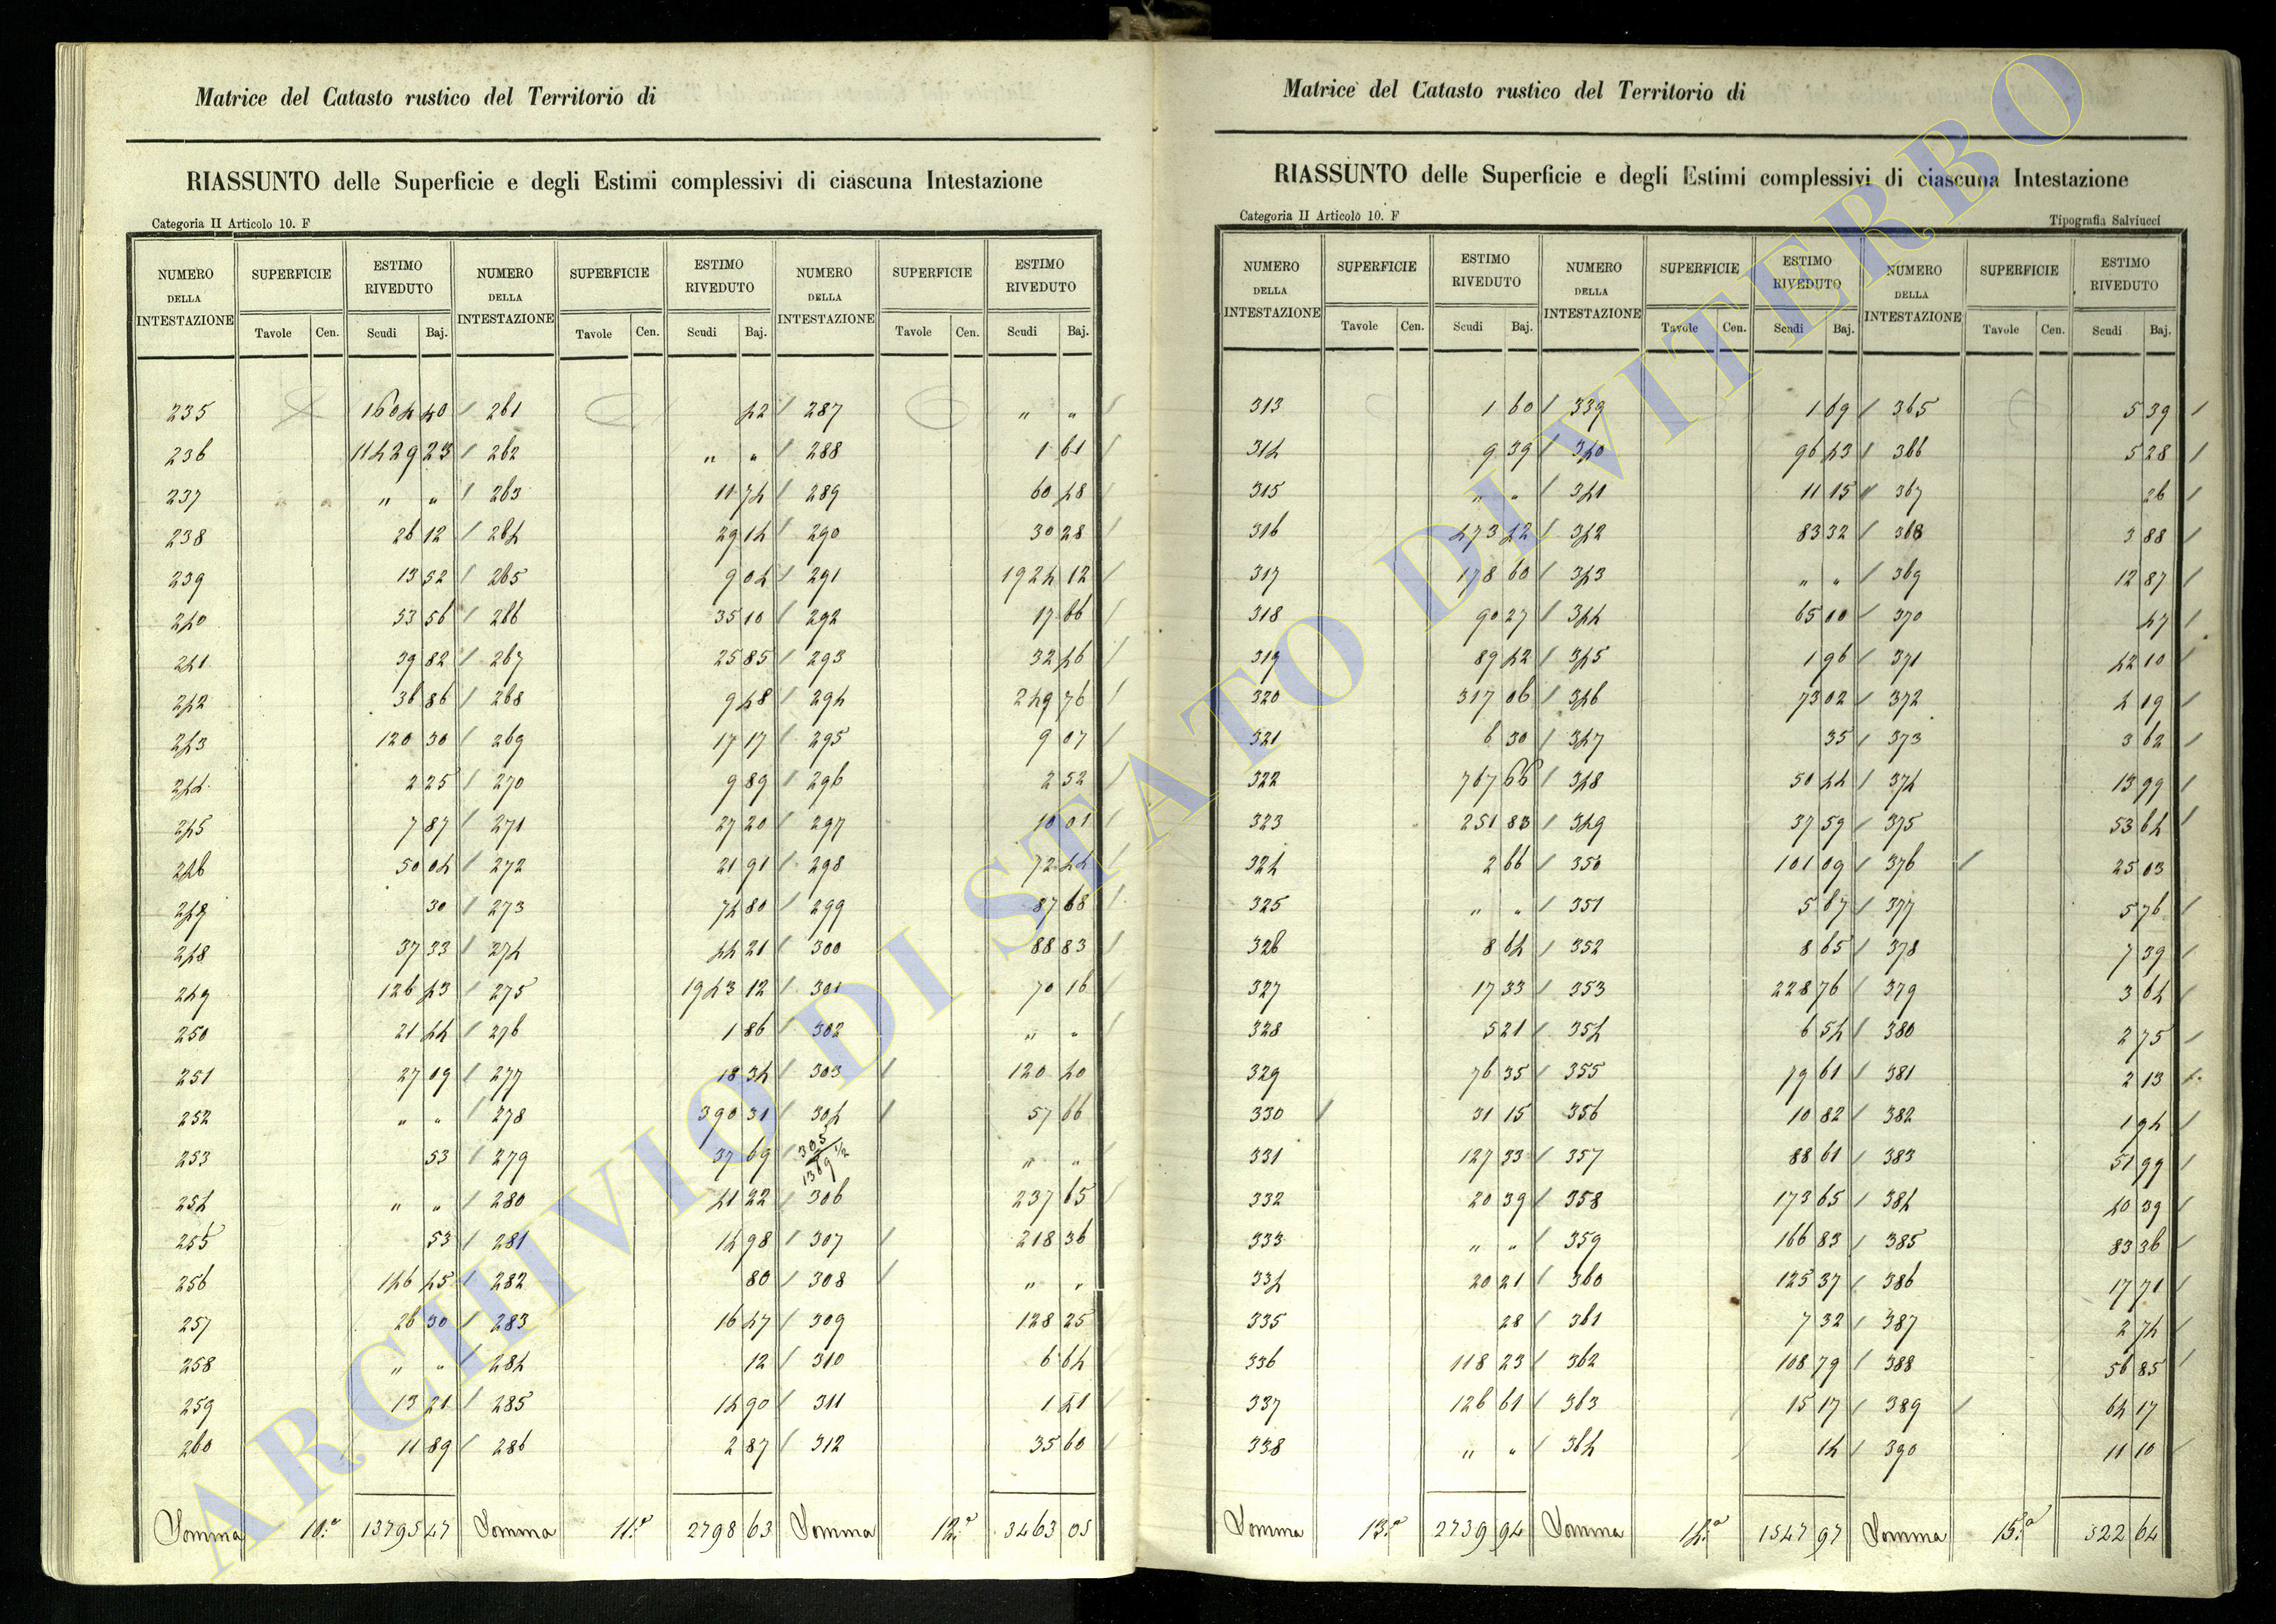 Matrice del Catasto rustico del Territorio di
RIASSUNTO delle Superficie e degli Estimi complessivi di ciascuna Intestazione
Categoria II Articolo 10. F
NUMERO DELLA INTESTAZIONE SUPERFICIE ESTIMO RIVEDUTO NUMERO DELLA INTESTAZIONE SUPERFICIE ESTIMO RIVEDUTO NUMERO DELLA INTESTAZIONE SUPERFICIE ESTIMO RIVEDUTO
Tavole Cen. Scudi Baj. Tavole Cen. Scudi Baj. Tavole Cen. Scudi Baj.
235 1604 40 261 42 287 " "
236 11429 23 262 " " 288 1 61
237 " " 263 11 74 289 60 48
238 26 12 264 29 14 290 30 28
239 13 52 265 9 04 291 1924 12
240 53 56 266 35 10 292 17 66
241 39 82 267 25 85 293 32 46
242 36 86 268 9 48 294 249 76
243 120 30 269 17 17 295 9 07
244 2 25 270 9 89 296 2 52
245 7 87 271 27 20 297 10 01
246 50 04 272 21 91 298 72 44
247 30 273 74 80 299 87 68
248 37 33 274 44 21 300 88 83
249 126 43 275 1943 12 301 70 16
250 21 44 276 1 86 302 " "
251 27 09 277 18 34 303 120 40
252 " " 278 390 31 304 57 66
253 53 279 37 69 305/1369 1/2 " "
254 " " 280 41 22 306 237 65
255 53 281 14 98 307 218 36
256 146 45 282 80 308 " "
257 26 30 283 16 47 309 128 25
258 " " 284 12 310 6 64
259 13 21 285 14 90 311 1 41
260 11 89 286 2 87 312 35 60
Somma 10.a 13795 47 Somma 11.a 2798 63 Somma 12.a 3463 05
Matrice del Catasto rustico del Territorio di
RIASSUNTO delle Superficie e degli Estimi complessivi di ciascuna Intestazione
Categoria II Articolo 10. F Tipografia Salviucci
NUMERO DELLA INTESTAZIONE SUPERFICIE ESTIMO RIVEDUTO NUMERO DELLA INTESTAZIONE SUPERFICIE ESTIMO RIVEDUTO NUMERO DELLA INTESTAZIONE SUPERFICIE ESTIMO RIVEDUTO
Tavole Cen. Scudi Baj. Tavole Cen. Scudi Baj. Tavole Cen. Scudi Baj.
313 1 60 339 1 69 365 5 39
314 9 39 340 96 43 366 5 28
315 " " 341 11 15 367 26
316 473 42 342 83 32 368 3 88
317 178 60 343 " " 369 12 87
318 90 27 344 65 10 370 47
319 89 42 345 1 96 371 42 10
320 317 06 346 73 02 372 4 19
321 6 30 347 35 373 3 62
322 767 66 348 50 44 374 13 99
323 251 83 349 37 59 375 53 64
324 2 66 350 101 09 376 25 03
325 " " 351 5 67 377 5 76
326 8 64 352 8 65 378 7 39
327 17 33 353 228 76 379 3 64
328 5 21 354 6 54 380 2 75
329 76 35 355 79 61 381 2 13
330 31 15 356 10 82 382 1 94
331 127 33 357 88 61 383 51 99
332 20 39 358 173 65 384 40 39
333 " " 359 166 83 385 83 36
334 20 21 360 125 37 386 17 71
335 28 361 7 32 387 2 74
336 118 23 362 108 79 388 56 85
337 126 61 363 15 17 389 64 17
338 " " 364 14 390 11 10
Somma 13.a 2739 94 Somma 14.a 1547 97 Somma 15.a 522 64
ARCHIVIO DI STATO DI VITERBO